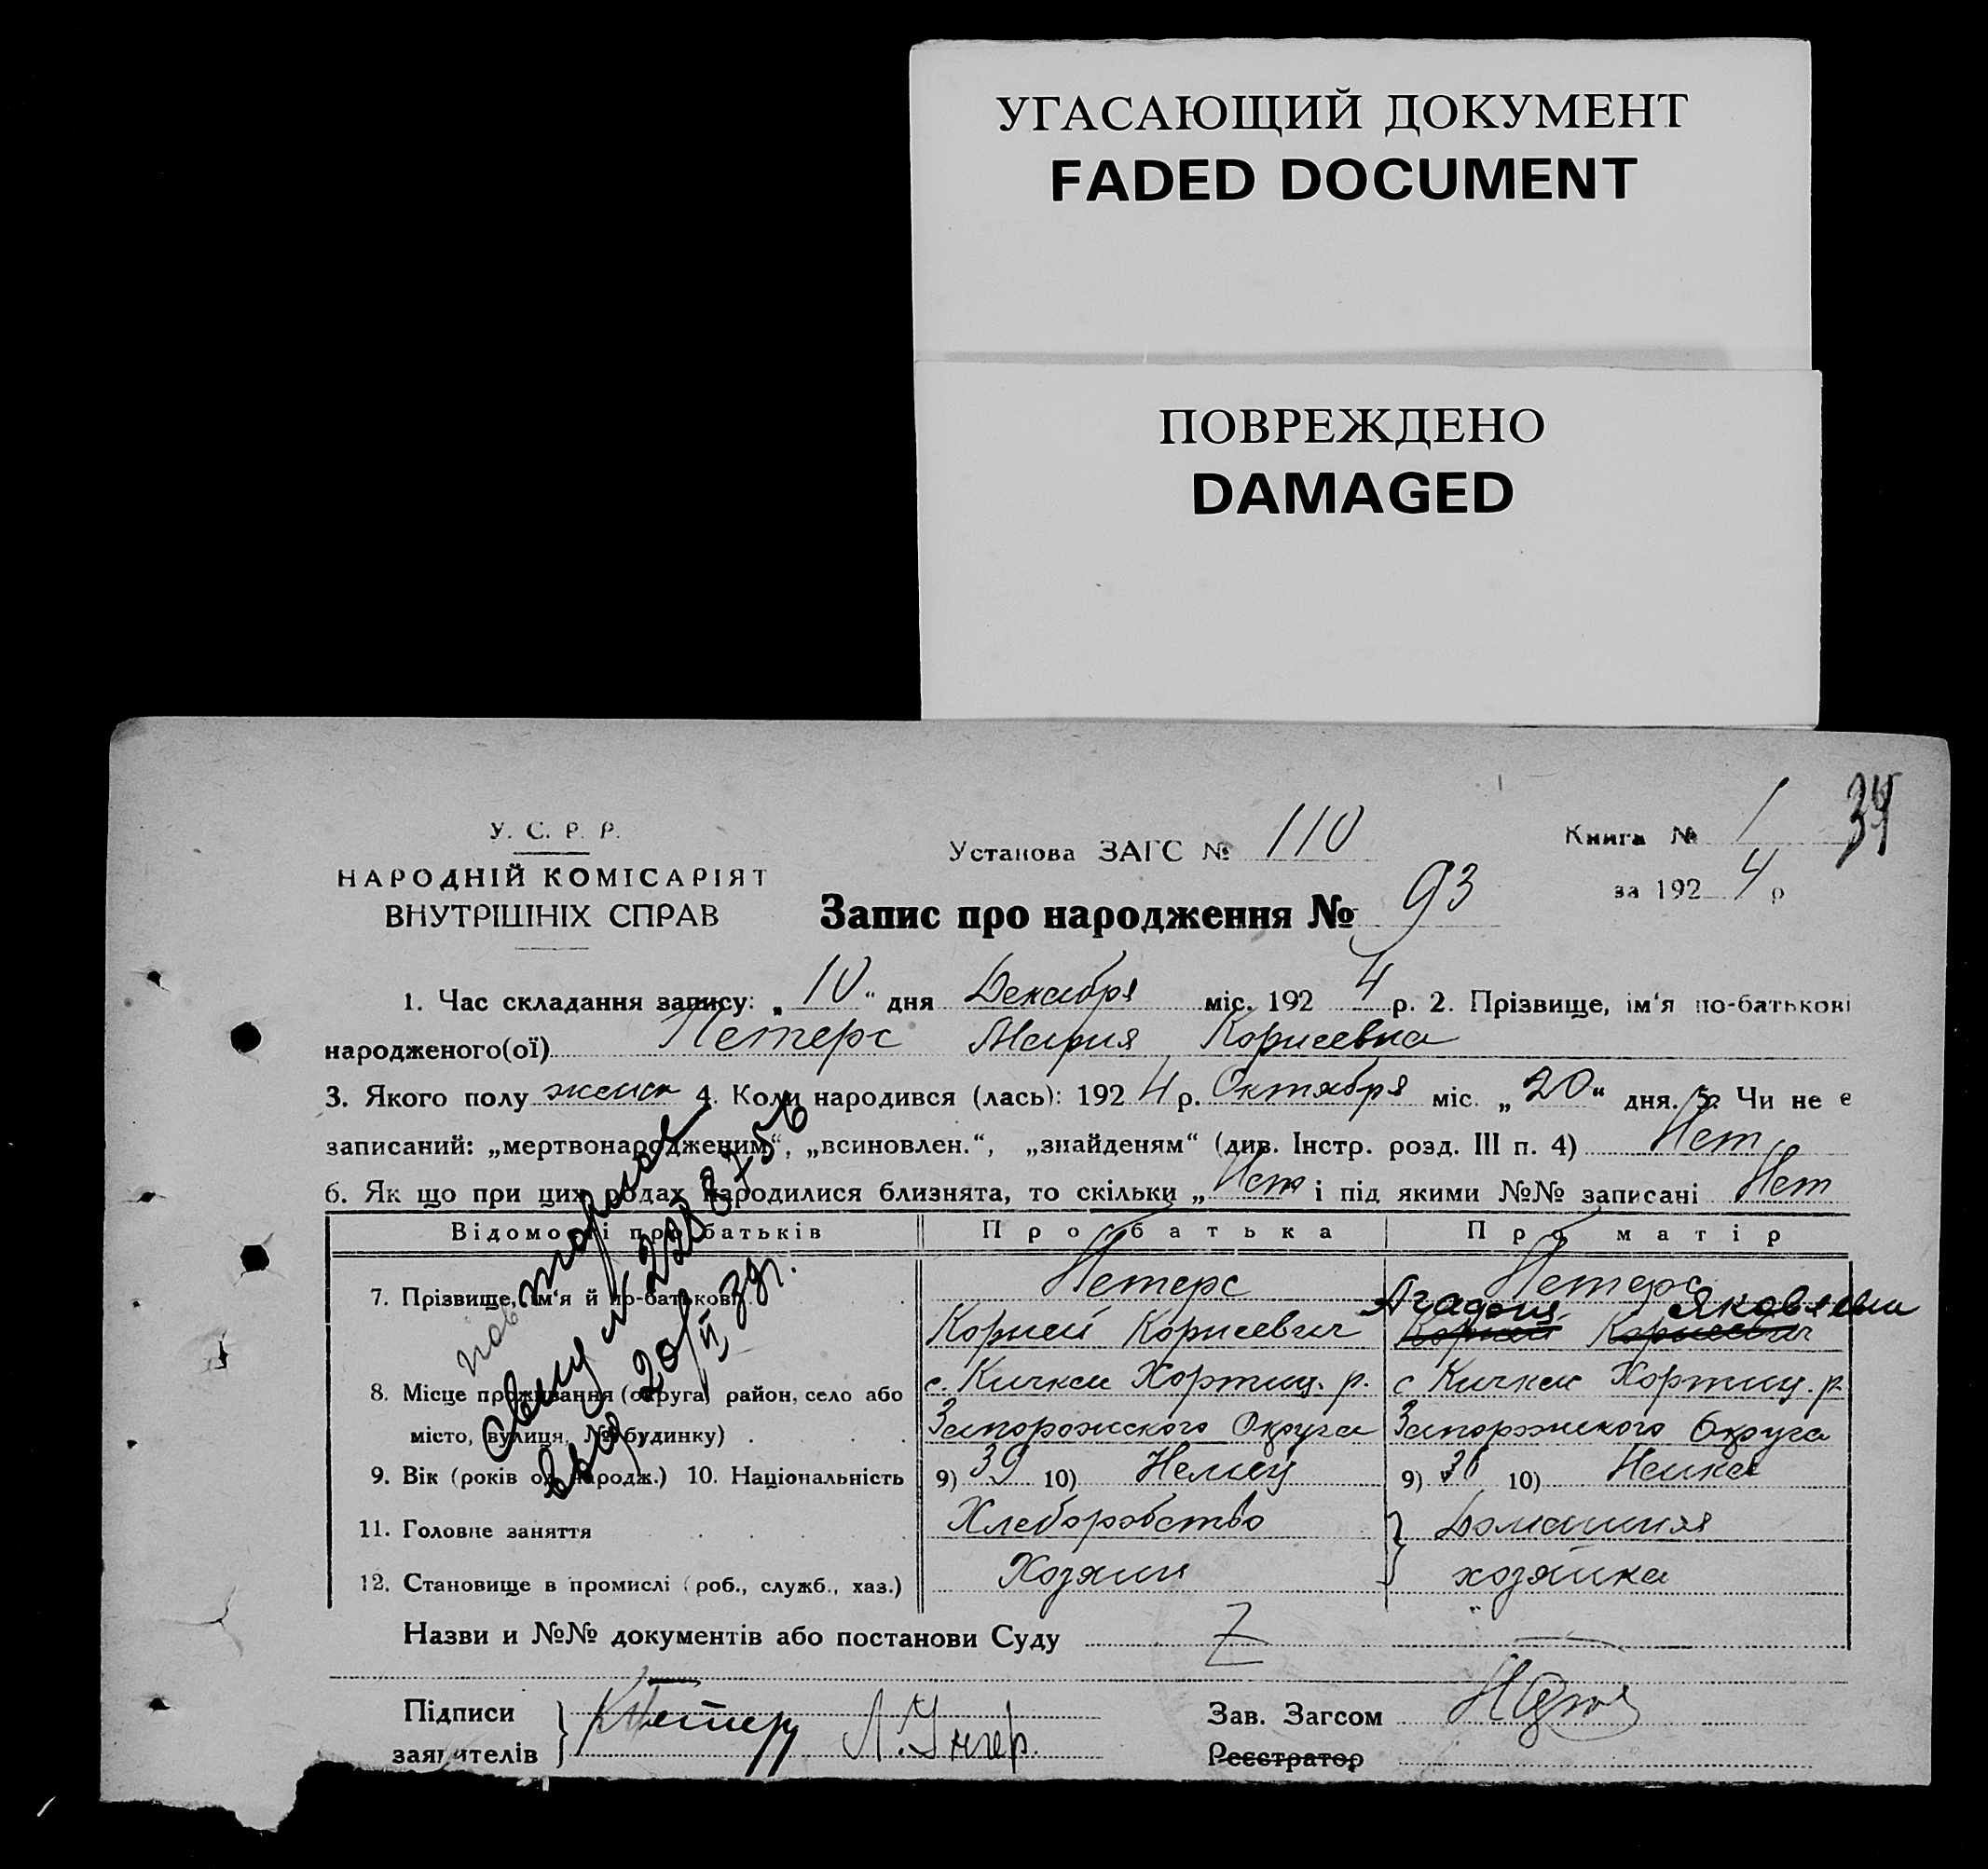 УГАСАЮЩИЙ ДОКУМЕНТ
FADED DOCUMENT
ПОВРЕЖДЕНО
DAMAGED
34
У. С. Р. Р.
НАРОДНІЙ КОМІСАРІЯТ
ВНУТРІШНІХ СПРАВ
Установа ЗАГС № 110
Книга № 1
за 1924 р
Запис про народження № 93
1. Час складання запису: „10“ дня Декабря міс. 1924 р. 2. Прізвище, ім‘я по-батькові
народженого(ої) Петерс Мария Корнеевна
3. Якого полу женск 4. Коли народився (лась): 1924 р. Октября міс. „20“ дня. 5. Чи не є
записаний: „мертвонародженим“, „всиновлен.“, „знайденям“ (див. Інстр. розд. III п. 4) Нет
6. Як що при цих родах народилися близнята, то скільки „Нет і під якими №№ записані Нет
Відомості про батьків Про батька Про матір
7. Прізвище, ім‘я й по-батькові Петерс Петерс
Яковлевна
Корней Корнеевич Корней Корнеевич
8. Місце проживання (округа, район, село або с. Кичкас Хортиц. р. с Кичкас Хортиц. р.
місто, вулиця, № будинку) Запорожского Округа Запорожского Округа
9. Вік (років од народж.) 10. Національність 9) 39 10) Немец 9) 36 10) Немка
11. Головне заняття Хлеборобство Домашняя
12. Становище в промислі (роб., служб., хаз.) Хозяин хозяйка
Назви и №№ документів або постанови Суду Z
Підписи
заявителів
К Петерс Л. Унгер.
Зав. Загсом
Реєстратор
повторное
свид №
выд. 20/II 39г.